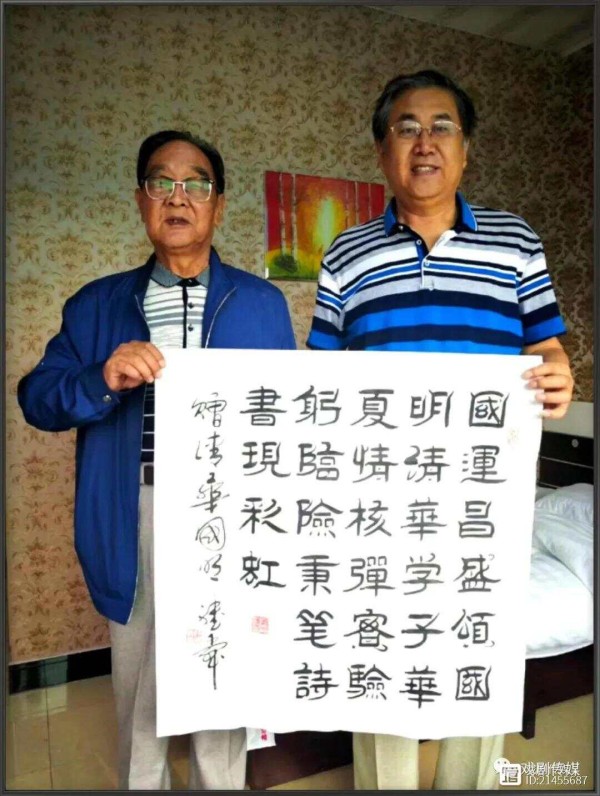 國運昌盛頌國
明清華学子華
夏情核彈密驗
躬臨險秉笔詩
書現彩虹
赠清華國明
戏剧传媒
ID:21455687